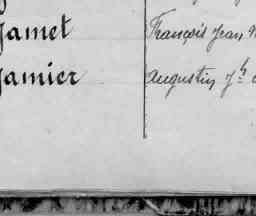 Jamet François Jean
Jamier Augustin Jh